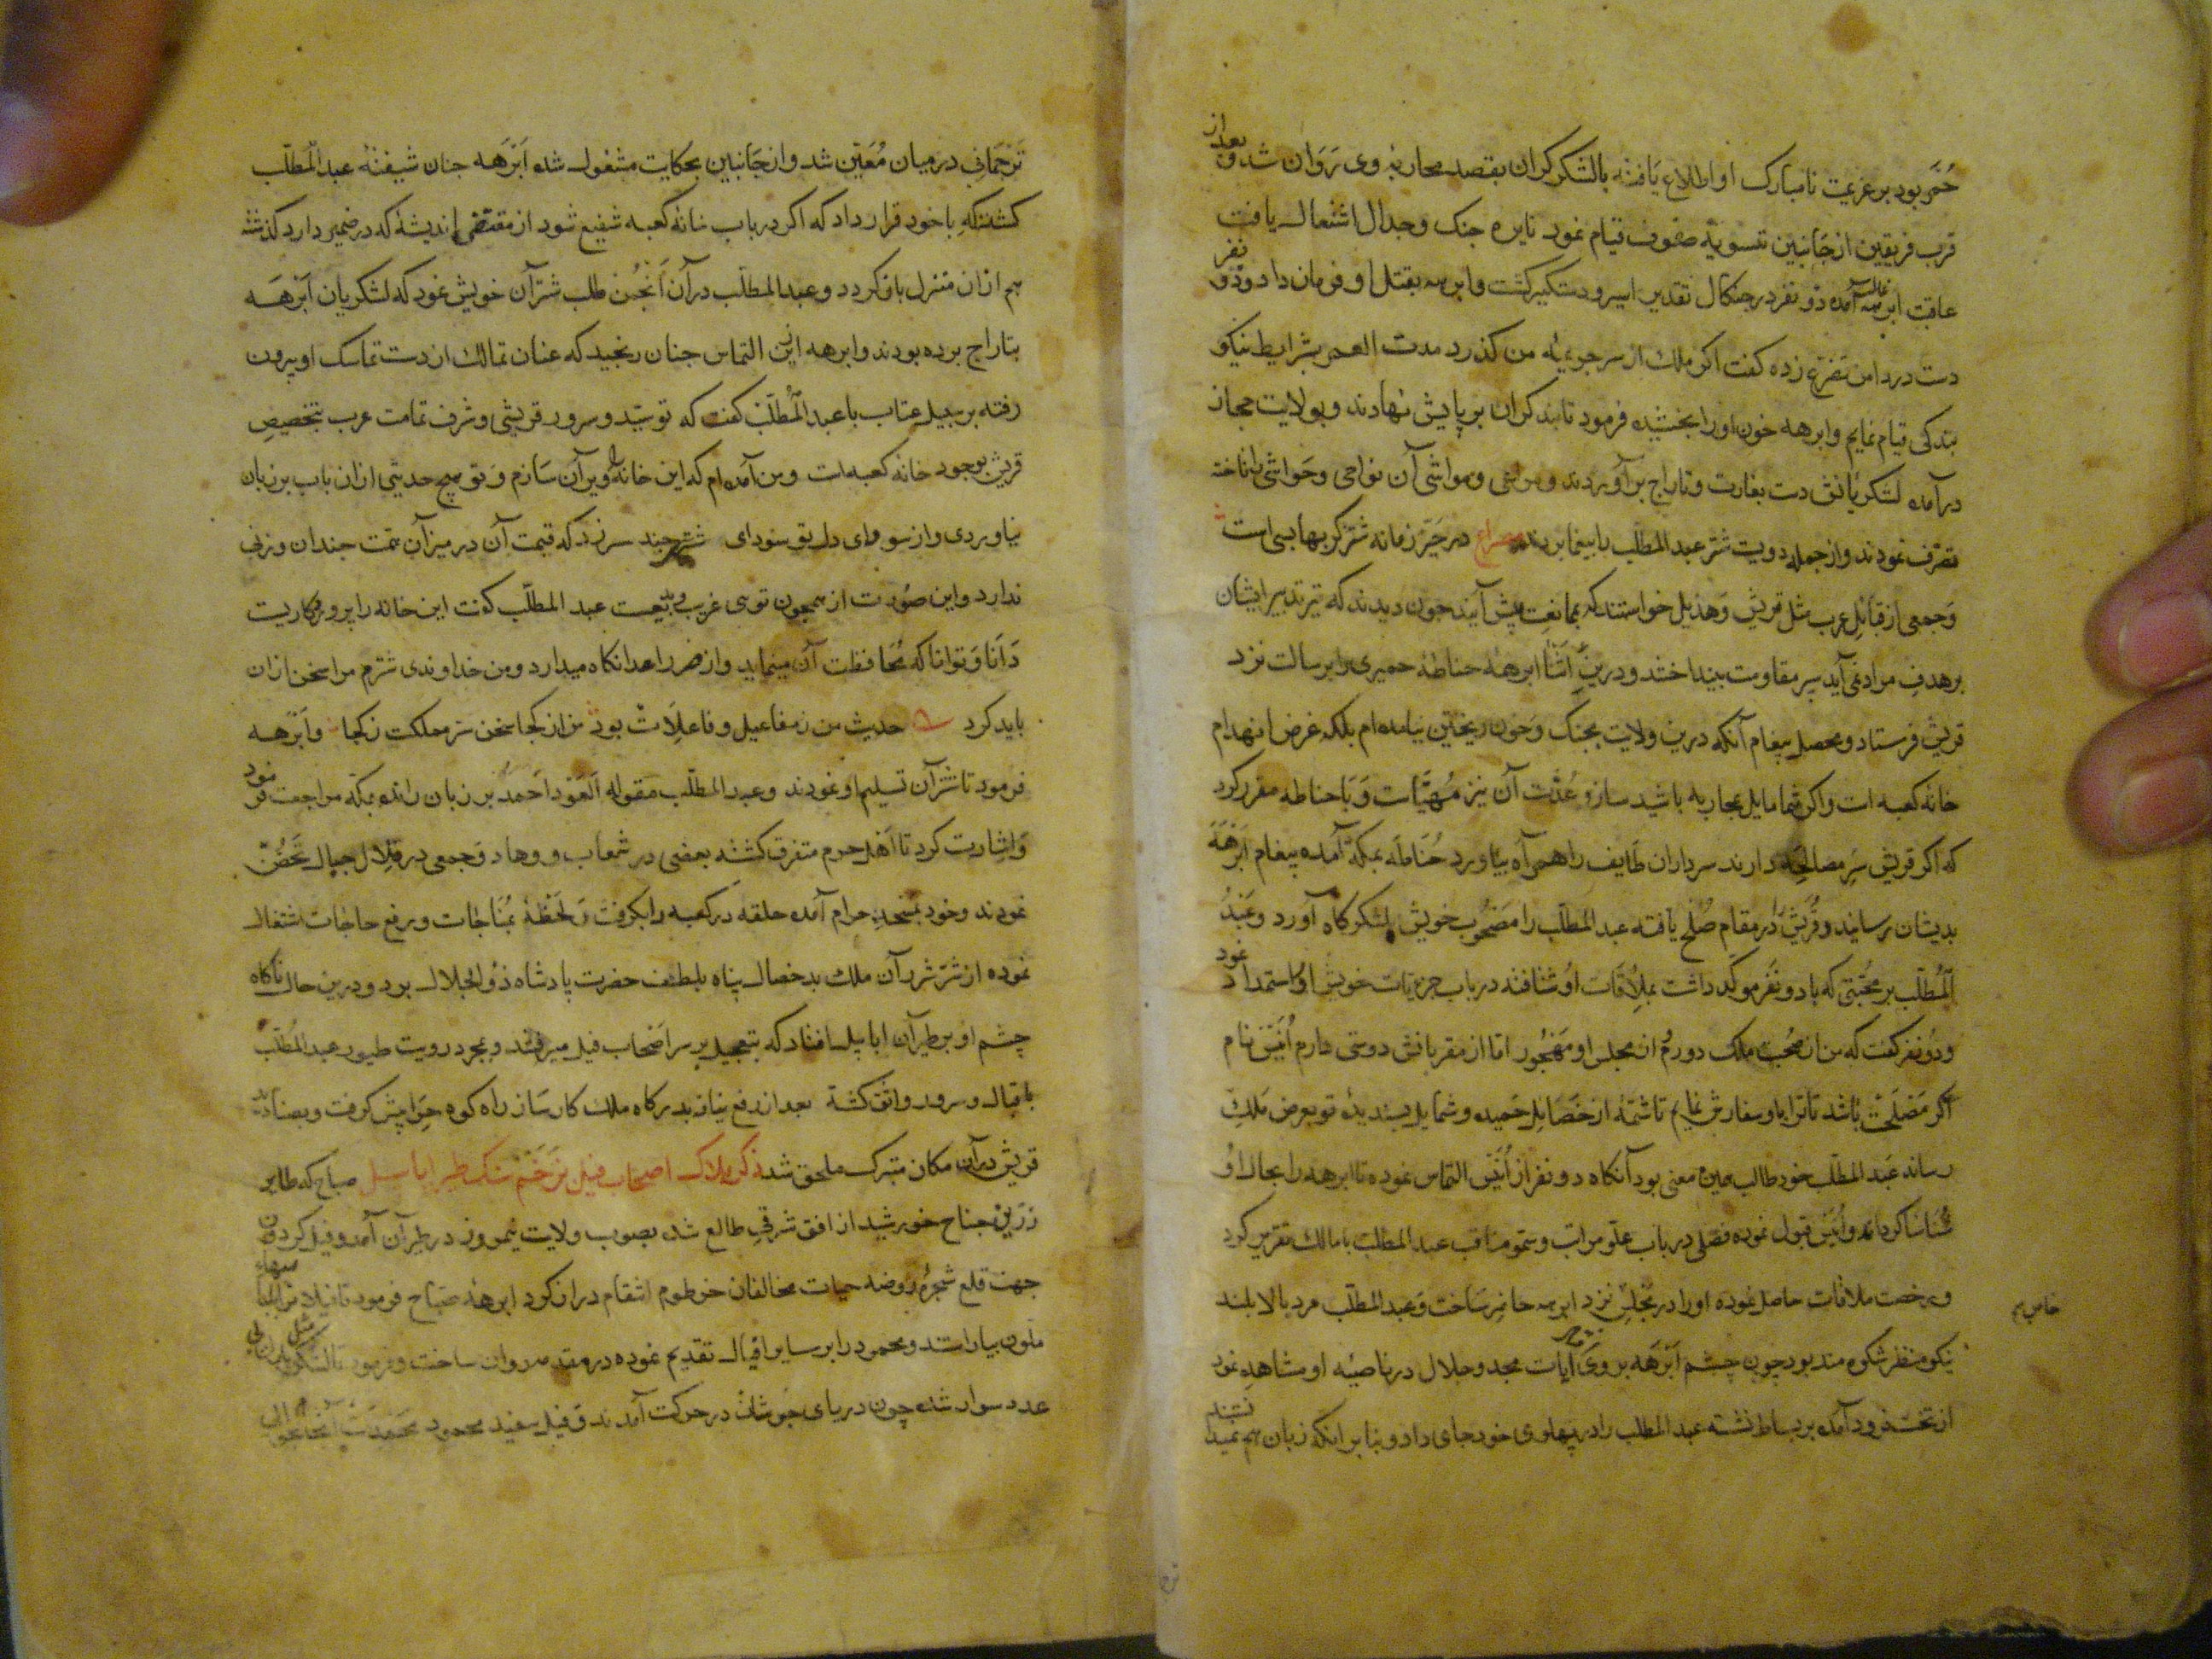 حُمَّیر بود بر عزیمت نامبارک او اطلاع یافته بالشکر کران بقصد محاربهٔ وی روان شد و بعد از
قرب فریقین از جانبین تسویهٔ صفوف قیام نمود نایره جنک و جدال اشتعال یافت
عاقبت ابرهه غالب آمده ذو نفر در جنکال تقدیر اسیر و دستکیر کشت و ابرهه بقتل او فرمان داد و ذو نفر
دست در دامن تضرع زده کفت اکر ملک از سر جریمه من کذرد مدت العمر بشرایط نیکو
بندکی قیام نمایم و ابرهه خون او را بخشیده فرمود تا بند کران بر پایش نهادند و بولایت حجاز
درآمده لشکریانش دست بغارت و تاراج برآوردند و مواشی آن نواحی و حواشی را تاخته
تصرف نمودند و از جمله دویست شتر عبد المطلب را بیغما بردند مصراع در حیّز زمانه شتر کربها بسی است
و جمعی از قبایل عرب مثل قریش و هذیل خواستند که بممانعت پیش آیند جون دیدند که تیر تدبیر ایشان
بر هدف مراد نمی آید سپر مقاومت بینداختند و درین اثنا ابرهه حناطهٔ حمیری را برسالت نزد
قریش فرستاد و محصل پیغام آنکه درین ولایت بجنک و خون ریختن نیامده ام بلکه غرض انهدام
خانهٔ کعبه است و اکر شما مایل بمحاربه باشید ساز و عُدّت آن نیز مُهیّاست و با حناطه مقرر کرد
که اکر قریش سر مصالحه دارند سرداران طایف را همراه بیاورد حُناطه بمکه آمده پیغام ابرهه
بدیشان رسانید و قریش در مقام صلح یافته عبد المطلب را مصحوب خویش بلشکرکاه آورد و عَبْدُ
المُطّلب بر محبّتی که با ذو نفر موکد داشت بملاقات او شتافته در باب جزییات خویش از و استمداد نمود
و ذو نفر کفت که من از صحبت ملک دورم و از مجلس او مهجور اما از مقربانش دوستی دارم اُنَیْس نام
اکر مصلحت باشد تا ترا باو سفارش نمایم تا شمّهٔ از خصایل حمیده و شمایل پسندیدهٔ تو بعرض ملک
رساند عبد المطلب خود طالب همین معنی بود آنکاه ذو نفر از اُنیس التماس نموده تا ابرهه را بحال او
شناسا کرداند و اُنیس قبول نموده فصلی در باب علو مراتب و سمو مناقب عبد المطلب با مالک تقریر کرد
و رخصت ملاقات حاصل نموده او را در مجلس نزد ابرهه حاضر ساخت و عبد المطلب مرد بالا بلند
نیکو منظر شکوه مند بود چون چشم ابرهه بر وی آیات مجد و جلال در ناصیهٔ او مشاهده نمود
از تخت فرود آمده بر بساط نشسته عبد المطلب را در پهلوی خود جای داد و بنابر اینکه زبان هم نمیدانستند
تَرجمانی در میان مُعَیّن شد و از جانبین بحکایت مشغول شده اَبْرَهه جنان شیفتهٔ عبد المطلب
کشت که با خود قرار داد که اکر در باب خانه کعبه شفیع شود از مقتضی اندیشهٔ که در ضمیر دارد کذشته
هم ازان منزل باز کردد و عبد المطلب در آن انجمن طلب شتران خویش نمود که لشکریان ابرهه
بتاراج برده بودند و ابرهه ازین التماس جنان رنجید که عنان تمالک از دست تماسک او بیرون
رفته بر سبیل عتاب با عبد المطلب کفت که تو سید و سرور قریشی و شرف تمامت عرب بتخصیص
قریش بوجود خانه کعبه است و من آمده ام که این خانه را ویران سازم و تو هیچ حدیثی ازان باب بر زبان
نیاوردی و از سویدای دل تو سودای شتر جند سر زد که قیمت آن در میزان همت جندان وزنی
ندارد و این صورت از همجون توئی غریب و بدیعست عبد المطلب کفت این خانه را پروردکاریست
دانا و توانا که محافظت آن مینماید و از ضرر اعدا نکاه میدارد و من خداوندی شترم مرا سخن ازان
باید کرد حدیث من ز مفاعیل و فاعلات بود من از کجا سخن سر مملکت ز کجا و اَبْرَهه
فرمود تا شتران تسلیم او نمودند و عبد المطلب مقوله اَلْعَوْد اَحمَدُ بر زبان رانده بمکه مراجعت نمود
و اشارت کرد تا اهل حرم متفرق کشته بعضی در شعاب و وهاد و جمعی در قلال جبال تحصّن
نمودند و خود بمسجد حرام آمده حلقه در کعبه را بکرفت و لحظهٔ بمناجات و رفع حاجات اشتغال
نموده از شرّ شرر آن ملک بد خصال پناه بلطف حضرت پادشاه ذو الجلال برد و درین حال ناکاه
چشم او بر طیران ابابیل افتاد که بتعجیل بر سر اصحاب فیل میرفتند و بمجرد رویت طیور عبد المطلب
باقبال و سرور واثق کشته بعد از رفع نیاز بدرکاه ملک کارساز راه کوه حرا پیش کرفت و بصنادید
قریش در آن مکان متبرک ملحق شد ذکر هلاک اصحاب فیل بزخم سنک طیر ابابیل صباح که طایر
زرین جناح خورشید از افق شرقی طالع شده بصوب ولایت نیمروز در طیران آمد و فیل کردون
جهت قلع شجرهٔ روضه حیات مخالفان خرطوم انتقام دراز کرد ابرهه صباح فرمود تا فیلان را
ملون بیاراستند و محمود را بر سایر افیال تقدیم نموده در مقدمه روان ساخت و فرمود تا لشکریان
عدد سوار شده چون دریای جوشان در حرکت آمدند و فیل سفید محمود